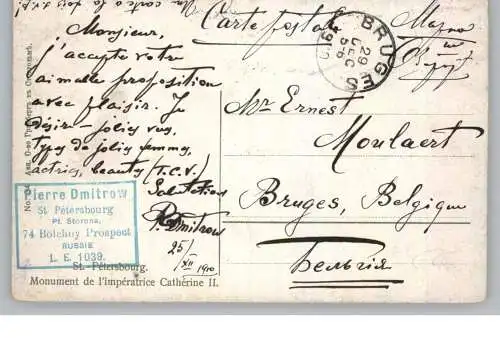 Un carte à la fois s.v.p.
Monsieur,
j'accepte votre
aimable proposition
avec plaisir. Je
désire - jolies vues,
types de jolies femmes,
actrices, beauty (T.C.V.)
Salutations
P. Dmitrow
25/XII 1910
Pierre Dmitrow
St. Pétersbourg
Pt. Storona,
74 Bolchoy Prospect
RUSSIE
L. E. 1039.
St.-Pétersbourg.
Monument de l'Impératrice Cathérine II.
Carte postale
BRUGES
29
DEC
Mr. Ernest
Moulaert
Bruges, Belgique
Бельгія